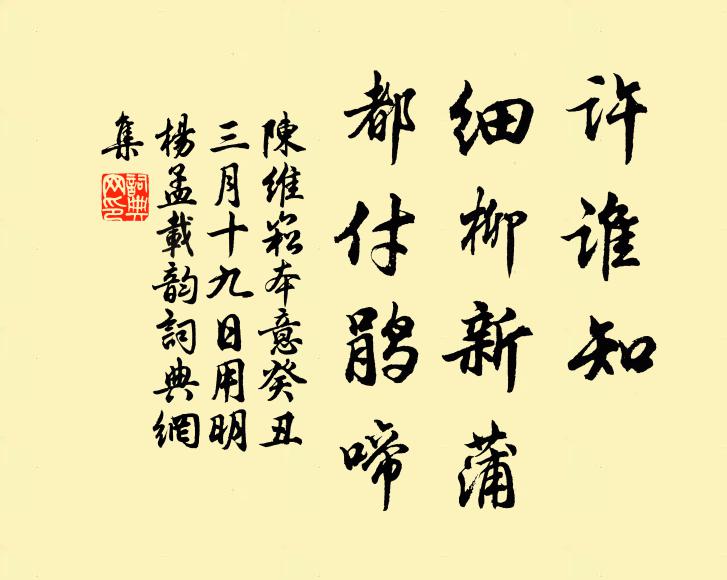 許谁知
细柳新蒲
都付鹃啼
陳維崧本意癸丑
三月十九日用明
楊孟載韵詞典網
集
詞典
网印